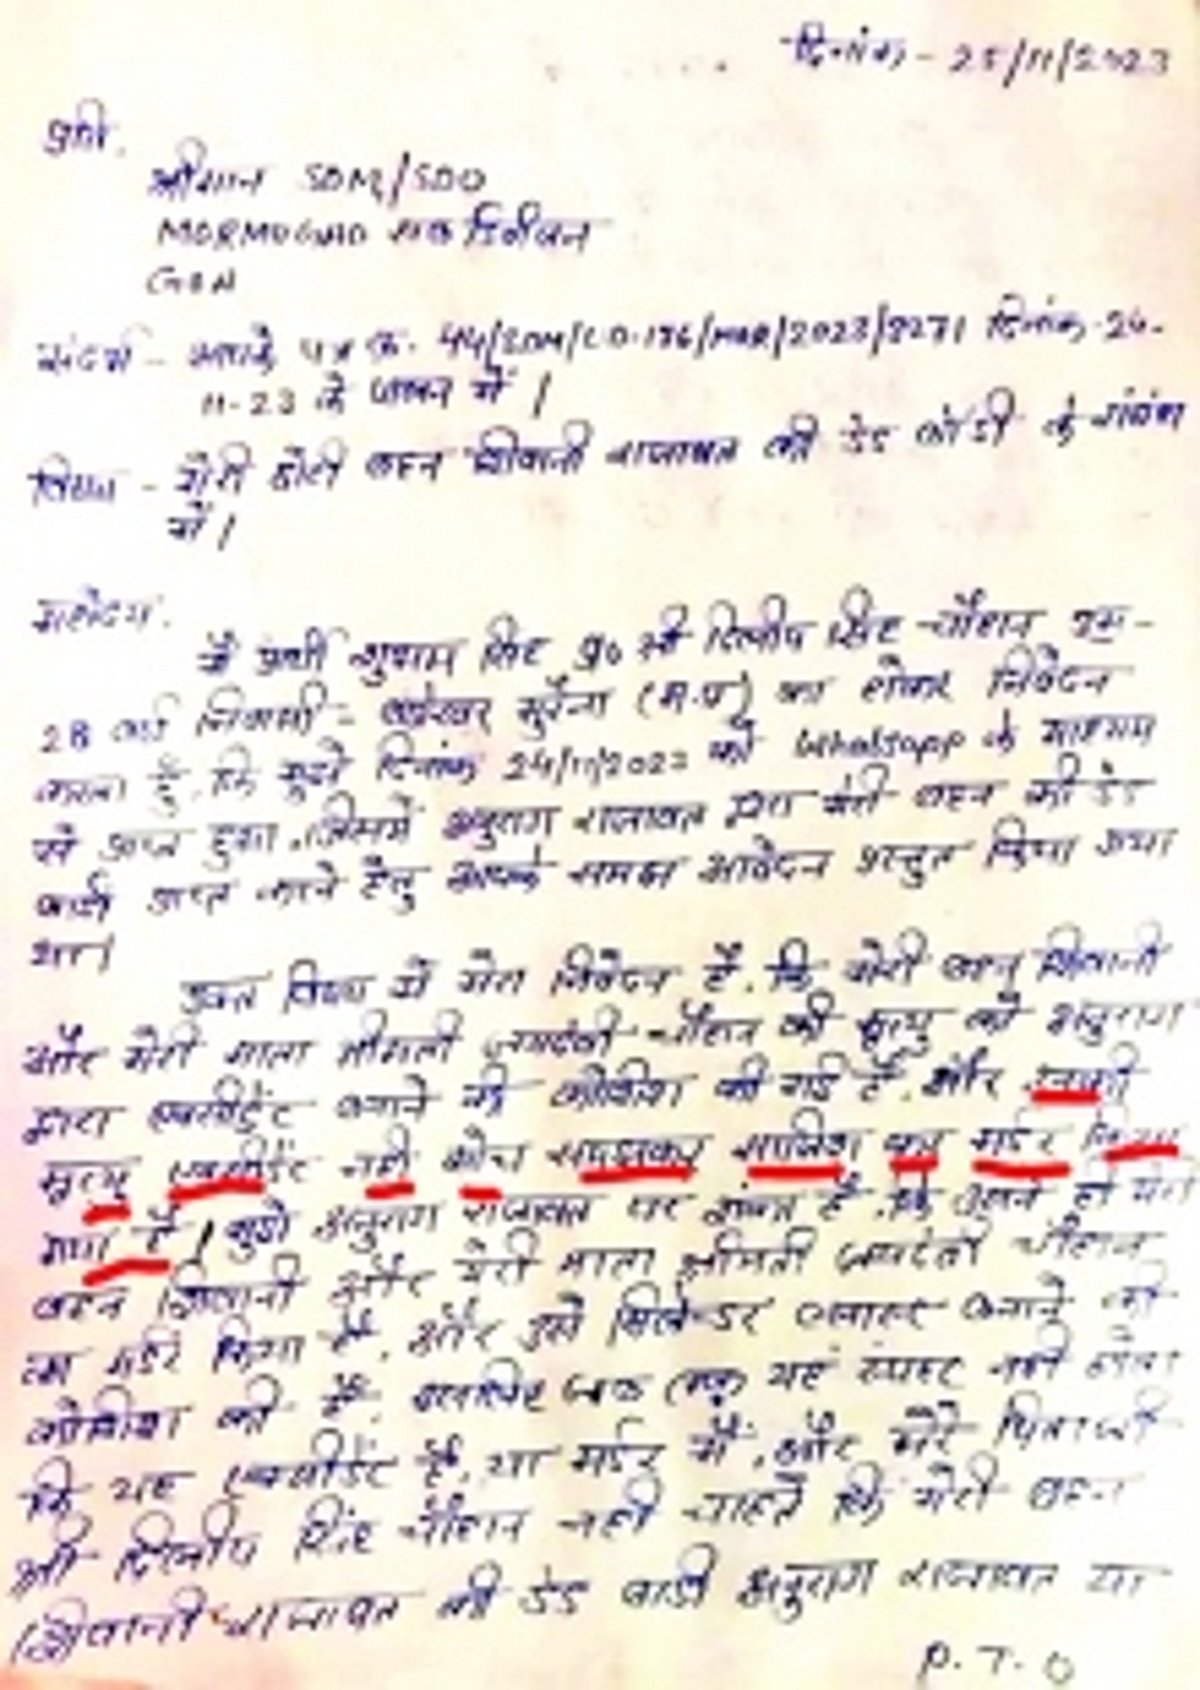 दिनांक - 25/11/2023
प्रति,
श्रीमान SDM/SDO
MORMUGAO सब डिवीजन
GOA
संदर्भ - आपके पत्र क्र. 44/SDM/CO-186/MOR/2023/8271 दिनांक 24-
11-23 के पालन में।
विषय - मेरी छोटी बहन शिवानी राजावत की डेड बॉडी के संबंध
में।
महोदय,
मैं प्रार्थी शुभम सिंह पु० श्री दिलीप सिंह चौहान उम्र-
28 वर्ष निवासी - मुरैना (म.प्र) का होकर निवेदन
करता हूँ, कि मुझे दिनांक 24/11/2023 को Whatsapp के माध्यम
से प्राप्त हुआ, जिसमें अनुराग राजावत द्वारा मेरी बहन की डेड
बाडी प्राप्त करने हेतु आपके समक्ष आवेदन प्रस्तुत किया गया
था।
उक्त विषय में मेरा निवेदन है, कि मेरी बहन शिवानी
और मेरी माता श्रीमती जयदेवी चौहान की मृत्यु को अनुराग
द्वारा एक्सीडेंट बनाने की कोशिश की गई है, और उनकी
मृत्यु एक्सीडेंट नहीं साजिश कर मर्डर किया
गया है। मुझे अनुराग राजावत पर शक है, कि उसने ही मेरी
बहन शिवानी और मेरी माता श्रीमती जयदेवी चौहान
का मर्डर किया है, और उसे सिलेन्डर ब्लास्ट बनाने की
कोशिश की है, इसलिए जब तक यह स्पष्ट नहीं होता
कि यह एक्सीडेंट है, या मर्डर में, और मेरे पिता जी
श्री दिलीप सिंह चौहान नहीं चाहते कि मेरी बहन
शिवानी राजावत की डेड बाडी अनुराग राजावत या
P.T.O